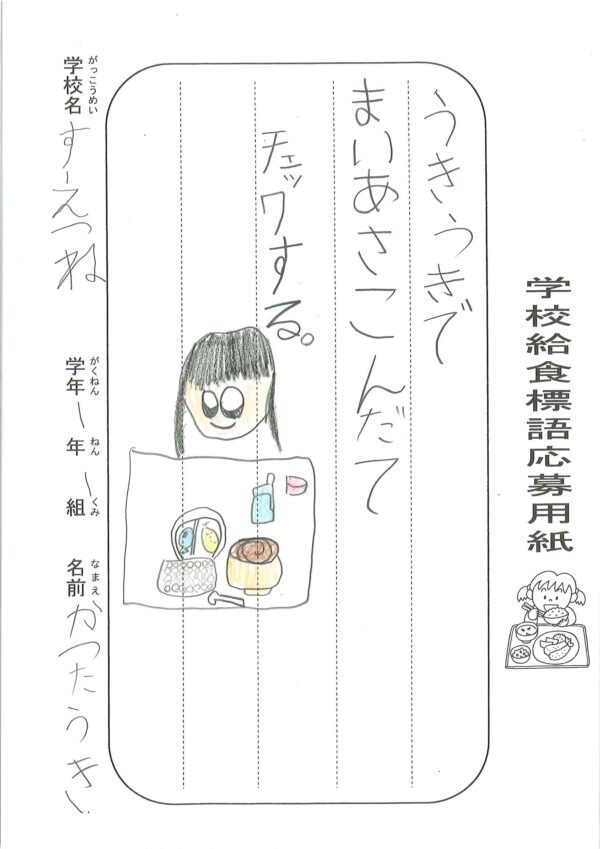 学校給食標語応募用紙
うきうきで
まいあさこんだて
チェックする。
がっこうめい
学校名 すーえつね
がくねん ねん くみ
学年 一 年 一 組
なまえ
名前 かつたうきい